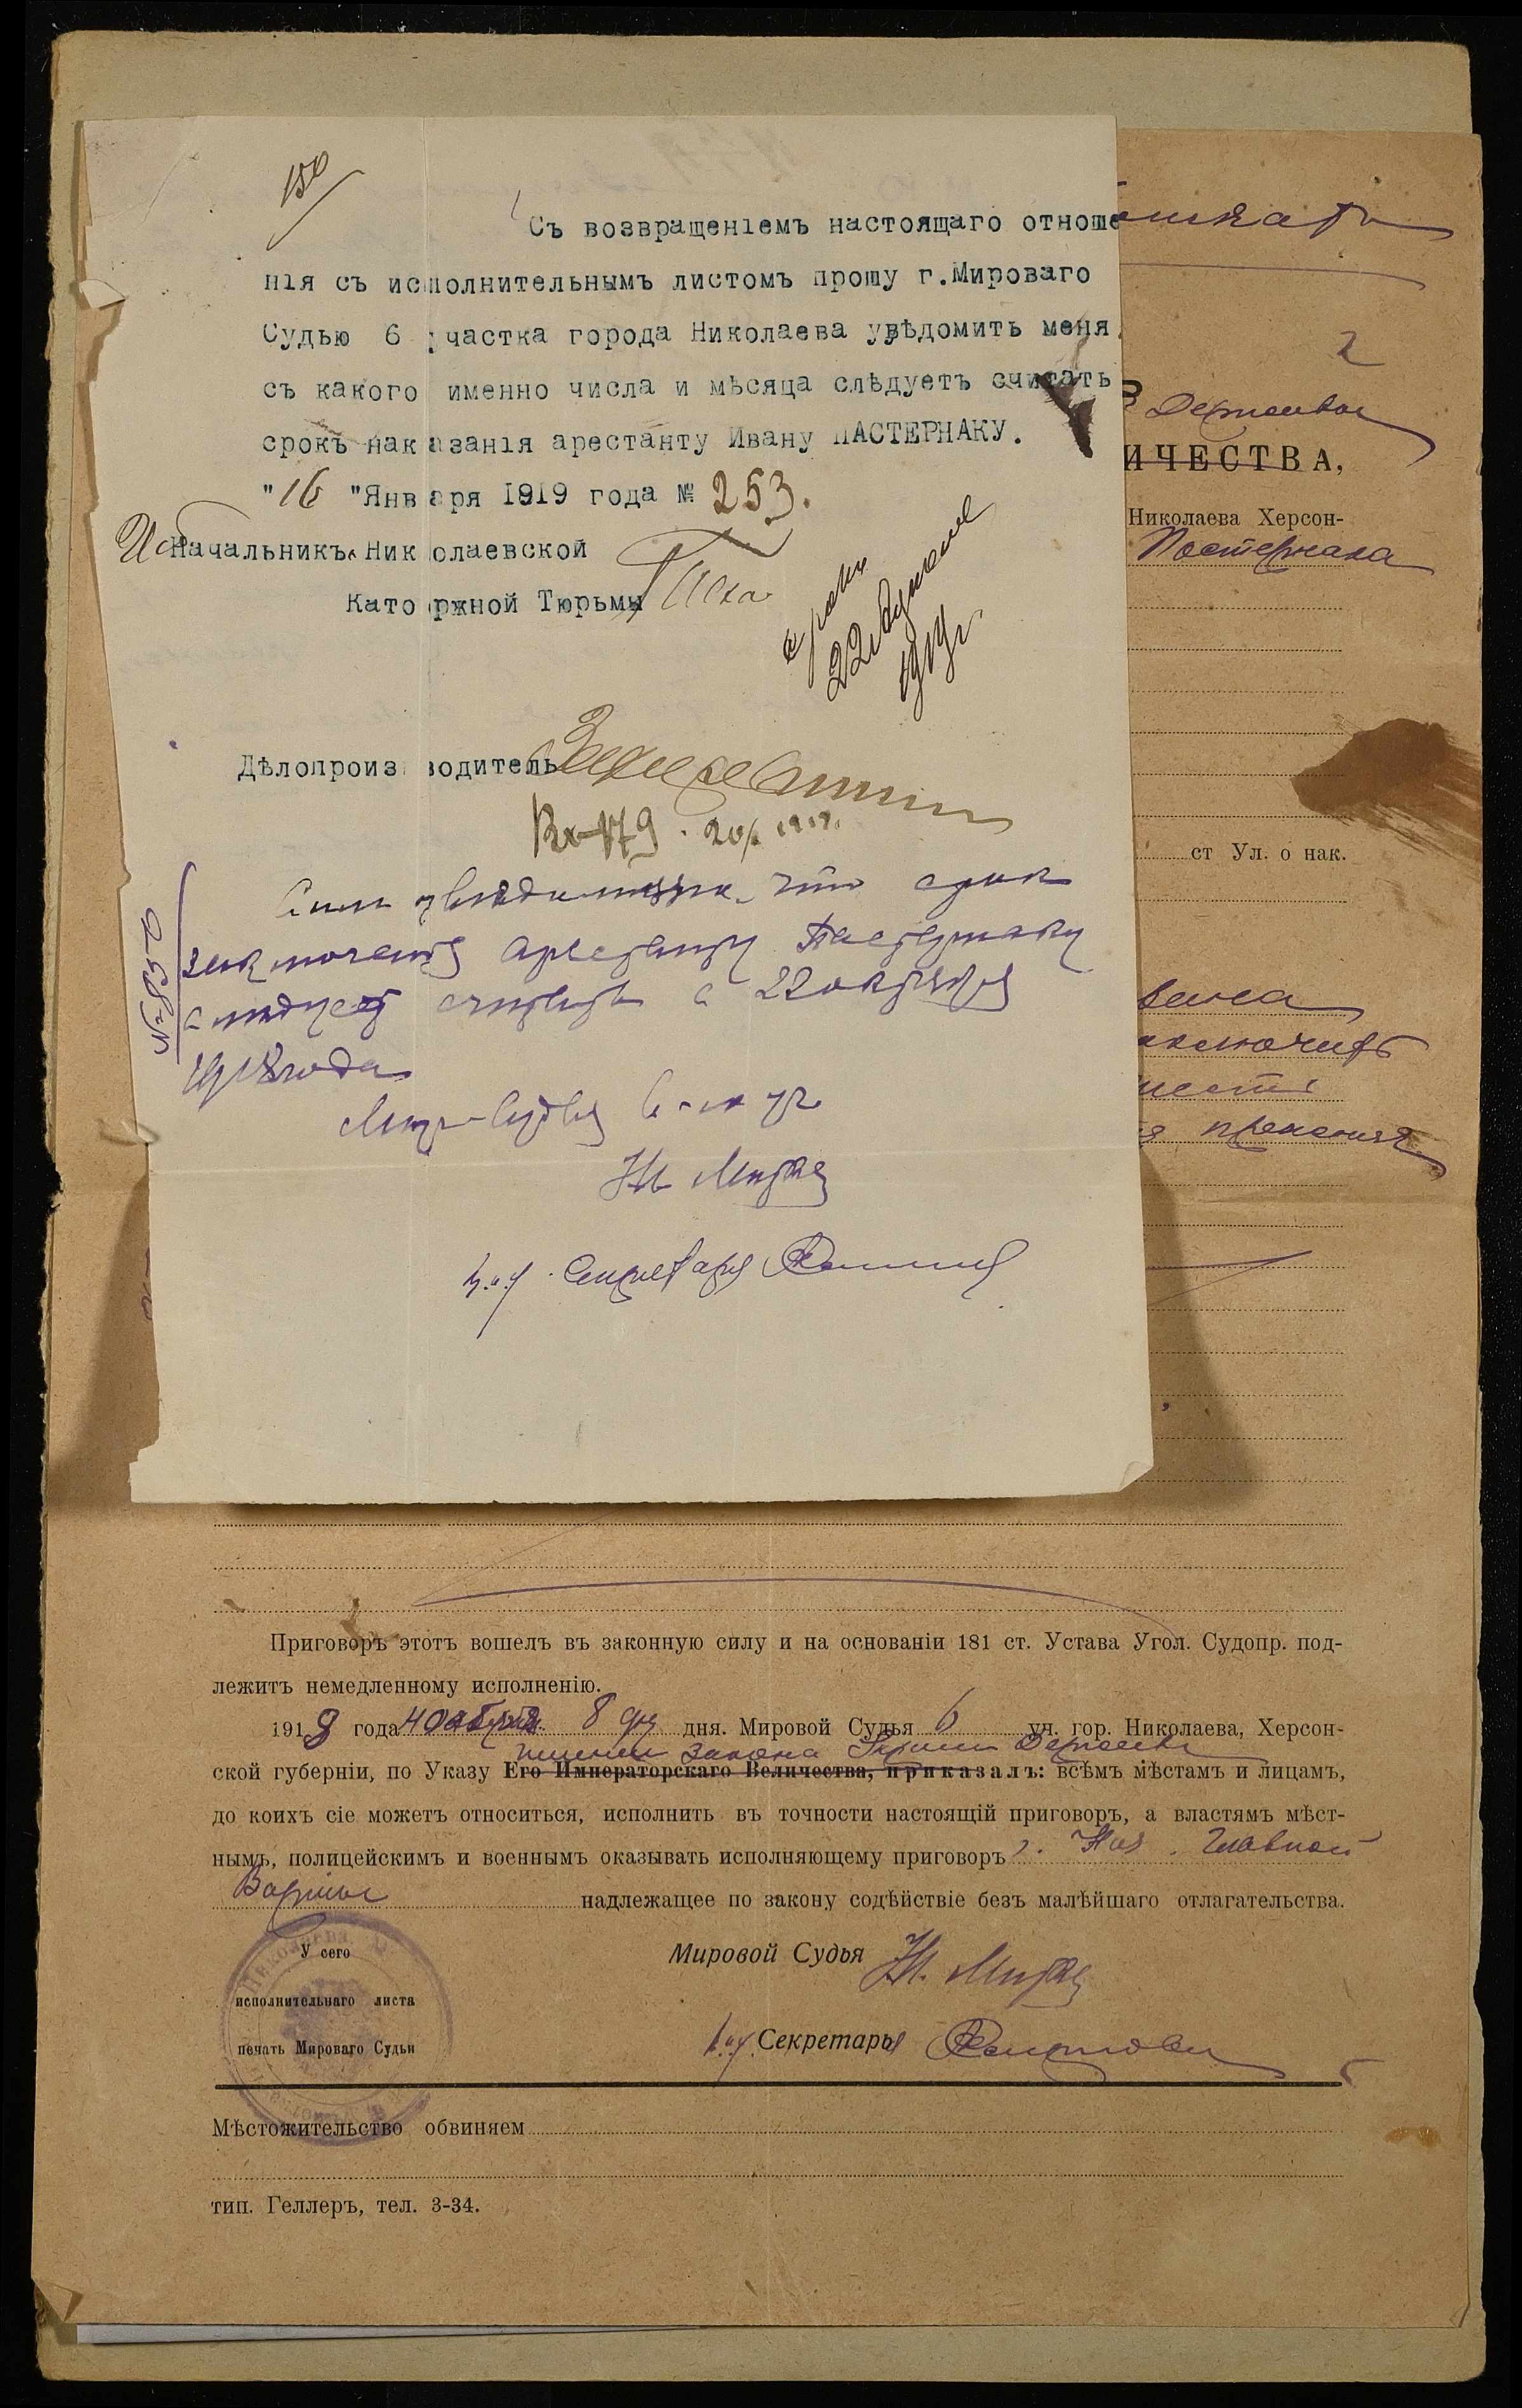 150
Съ возвращеніемъ настоящаго отноше
нія съ исполнительнымъ листомъ прошу г.Мироваго
Судью 6 участка города Николаева увѣдомить меня,
съ какого именно числа и мѣсяца слѣдуетъ считать
срокъ наказанія арестанту Ивану ПАСТЕРНАКУ.
"16 "Января 1919 года № 253.
Начальникъ Николаевской
Каторжной Тюрьмы
срокъ
22
1919 г.
Дѣлопроизводитель
Вх 179. 20/I 1919.
№ 852
Симъ увѣдомляю, что срок
заключения арестанту Пастернаку
следует считать с 22 октября
1918 года
Мир. Судья 6-го уч.
И.о. Секретаря
2
Державы
ИЧЕСТВА,
Николаева Херсон-
Пастернака
ст Ул. о нак.
заключить
шесть
Приговоръ этотъ вошелъ въ законную силу и на основаніи 181 ст. Устава Угол. Судопр. под-
лежитъ немедленному исполненію.
1918 года Ноября 8 дня. Мировой Судья 6 уч. гор. Николаева, Херсон-
именем Закона Державы
ской губерніи, по Указу Его Императорскаго Величества, приказалъ: всѣмъ мѣстамъ и лицамъ,
до коихъ сіе можетъ относиться, исполнить въ точности настоящій приговоръ, а властямъ мѣст-
нымъ, полицейскимъ и военнымъ оказывать исполняющему приговоръ г. Нач. Главной
Варты надлежащее по закону содѣйствіе безъ малѣйшаго отлагательства.
У сего
исполнительнаго листа
печать Мироваго Судьи
Мировой Судья
И.о. Секретаря
Мѣстожительство обвиняем
тип. Геллеръ, тел. 3-34.